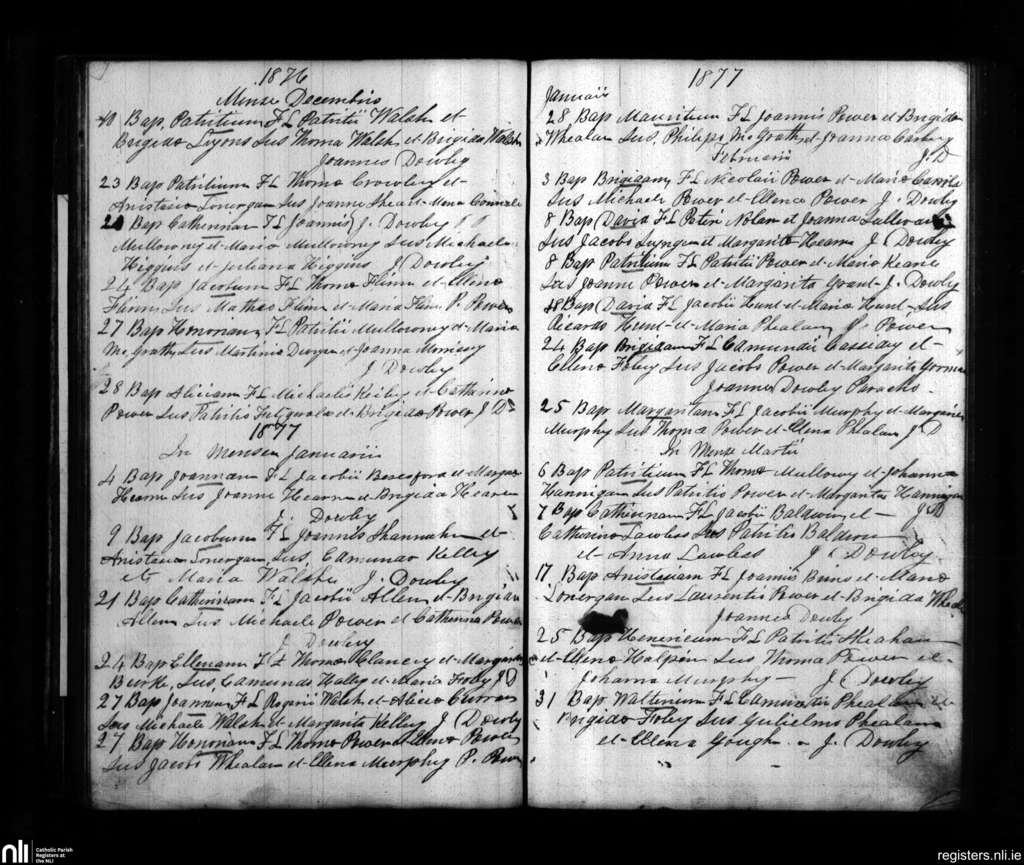 1876
Mense Decembris
10 Bap. Patritium F L Patritii Walsh et
Brigida Lyons Sus Thoma Walsh et Brigida Walsh
Joannes Dowley
23 Bap Patritium F L Thoma Crowley et
Anistasia Lonergan Sus Joanne Shea et Maria
Bap Catherinam F L Joannis J. Dowley
Mullowney et Maria Mullowney Sus Michaele
Higgins et Juliana Higgins J Dowley
24 Bap Jacobum F L Thoma Flinn et Ellena
Flinn Sus Matheo Flinn et Maria Flinn P. Power
27 Bap Honoriam F L Patritii Mullowney et Maria
Mc Grath Sus Martinio et Joanna Morrissy
J Dowley
28 Bap Aliciam F L Michaelis et Catherina
Power Sus Patritio Fitzgerald et Brigida Power J D
1877
In Mensem Januarii
4 Bap Joannam F L Jacobii Beresford et Margar
Hearn Sus Joanne Hearn et Brigida Hearn
J Dowley
9 Bap Jacobum F L Joannis Shannahan et
Anistasia Lonergan Sus, Edmundo Kelley
et Maria Walshe J. Dowley
21 Bap Catherinam F L Jacobii Allen et Brigida
Allen Sus Michaele Power et Catherina Power
J Dowley
24 Bap Ellenam F L Thoma Clancey et Margarita
Burke, Sus, Edmundo Halley et Maria Foley J D
27 Bap Joannem F L Rogerii Walsh et Alicia Curran
Sus Michaele Walsh et Margarita Kelley J Dowley
27 Bap Honoriam F L Thoma Power et Ellena Power
Sus Jacobo Whealan et Ellena Murphy P. Power
1877
Januarii
28 Bap Mauritium F L Joannis Power et Brigida
Whealan Sus, Philippo Mc Grath et Joanna Casey
Februarii J. D
3 Bap Brigidam, F L Nicolaii Power et Maria
Sus Michaele Power et Ellena Power J. Dowley
8 Bap David F L Petri Nolan et Joanna Sullivan
Sus Jacobo et Margarita Hearn J Dowley
8 Bap Patritium F L Patritii Power et Maria Keane
Sus Joanne Power et Margarita Grant J. Dowley
18 Bap David F L Jacobii Hunt et Maria Hunt Sus
Ricardo Hunt et Maria Phealan J. Power
24 Bap Brigidam F L Edmundii Cassidy et
Ellena Foley Sus Jacobo Power et Margarita Gorman
Joannes Dowley Parochs.
25 Bap Margaritam F L Jacobii Murphy et Margarita
Murphy Sus Thoma Power et Ellena Phealan J D
In Mense Martii
6 Bap Patritium F L Thoma Mullowny et Johanna
Hannigan Sus Patritio Power et Margarita Hannigan
7 Bap Catherinam F L Jacobii Baldwin et J D
Catherina Lawless Sus Patritio Baldwin
et Anna Lawless J Dowley
17 Bap Anistasiam F L Joannis Bins et Maria
Lonergan Sus Laurentio Power et Brigida Wheal
Joannes Dowley
25 Bap Henericum F L Patritii Meahan
et Ellena Halpin Sus Thoma Power et
Johanna Murphy J Dowley
31 Bap Walterium F L Edmundii Phealan et
Brigida Foley Sus Gulielmo Phealan
et Ellena Gough J. Dowley
nli Catholic Parish
Registers at
the NLI
registers.nli.ie